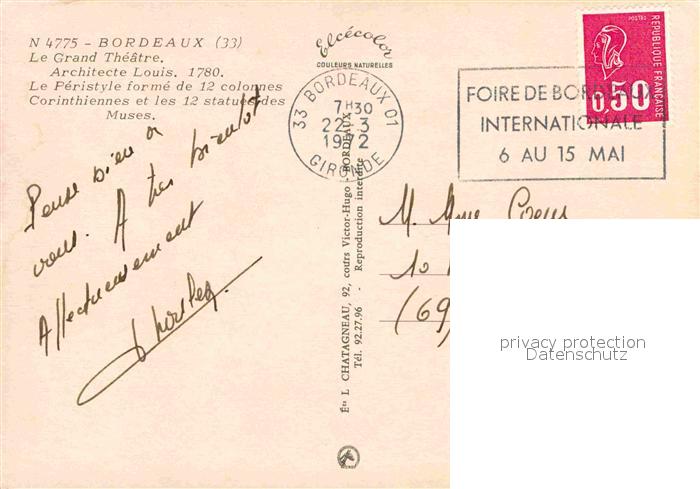 N 4775 - BORDEAUX (33)
Le Grand Théâtre.
Architecte Louis. 1780.
Le Péristyle formé de 12 colonnes
Corinthiennes et les 12 statues des
Muses.
Elcécolor
COULEURS NATURELLES
33 BORDEAUX 01
7H30
22-3
1972
GIRONDE
FOIRE DE BORDEAUX
INTERNATIONALE
6 AU 15 MAI
POSTES
REPUBLIQUE FRANÇAISE
0,50
Pense bien à
vous. A très bientôt
Affectueusement
Éts L CHATAGNEAU, 92, cours Victor-Hugo - BORDEAUX
Tél. 92.27-96 - Reproduction interdite
M. Mme
10
(69)
privacy protection
Datenschutz